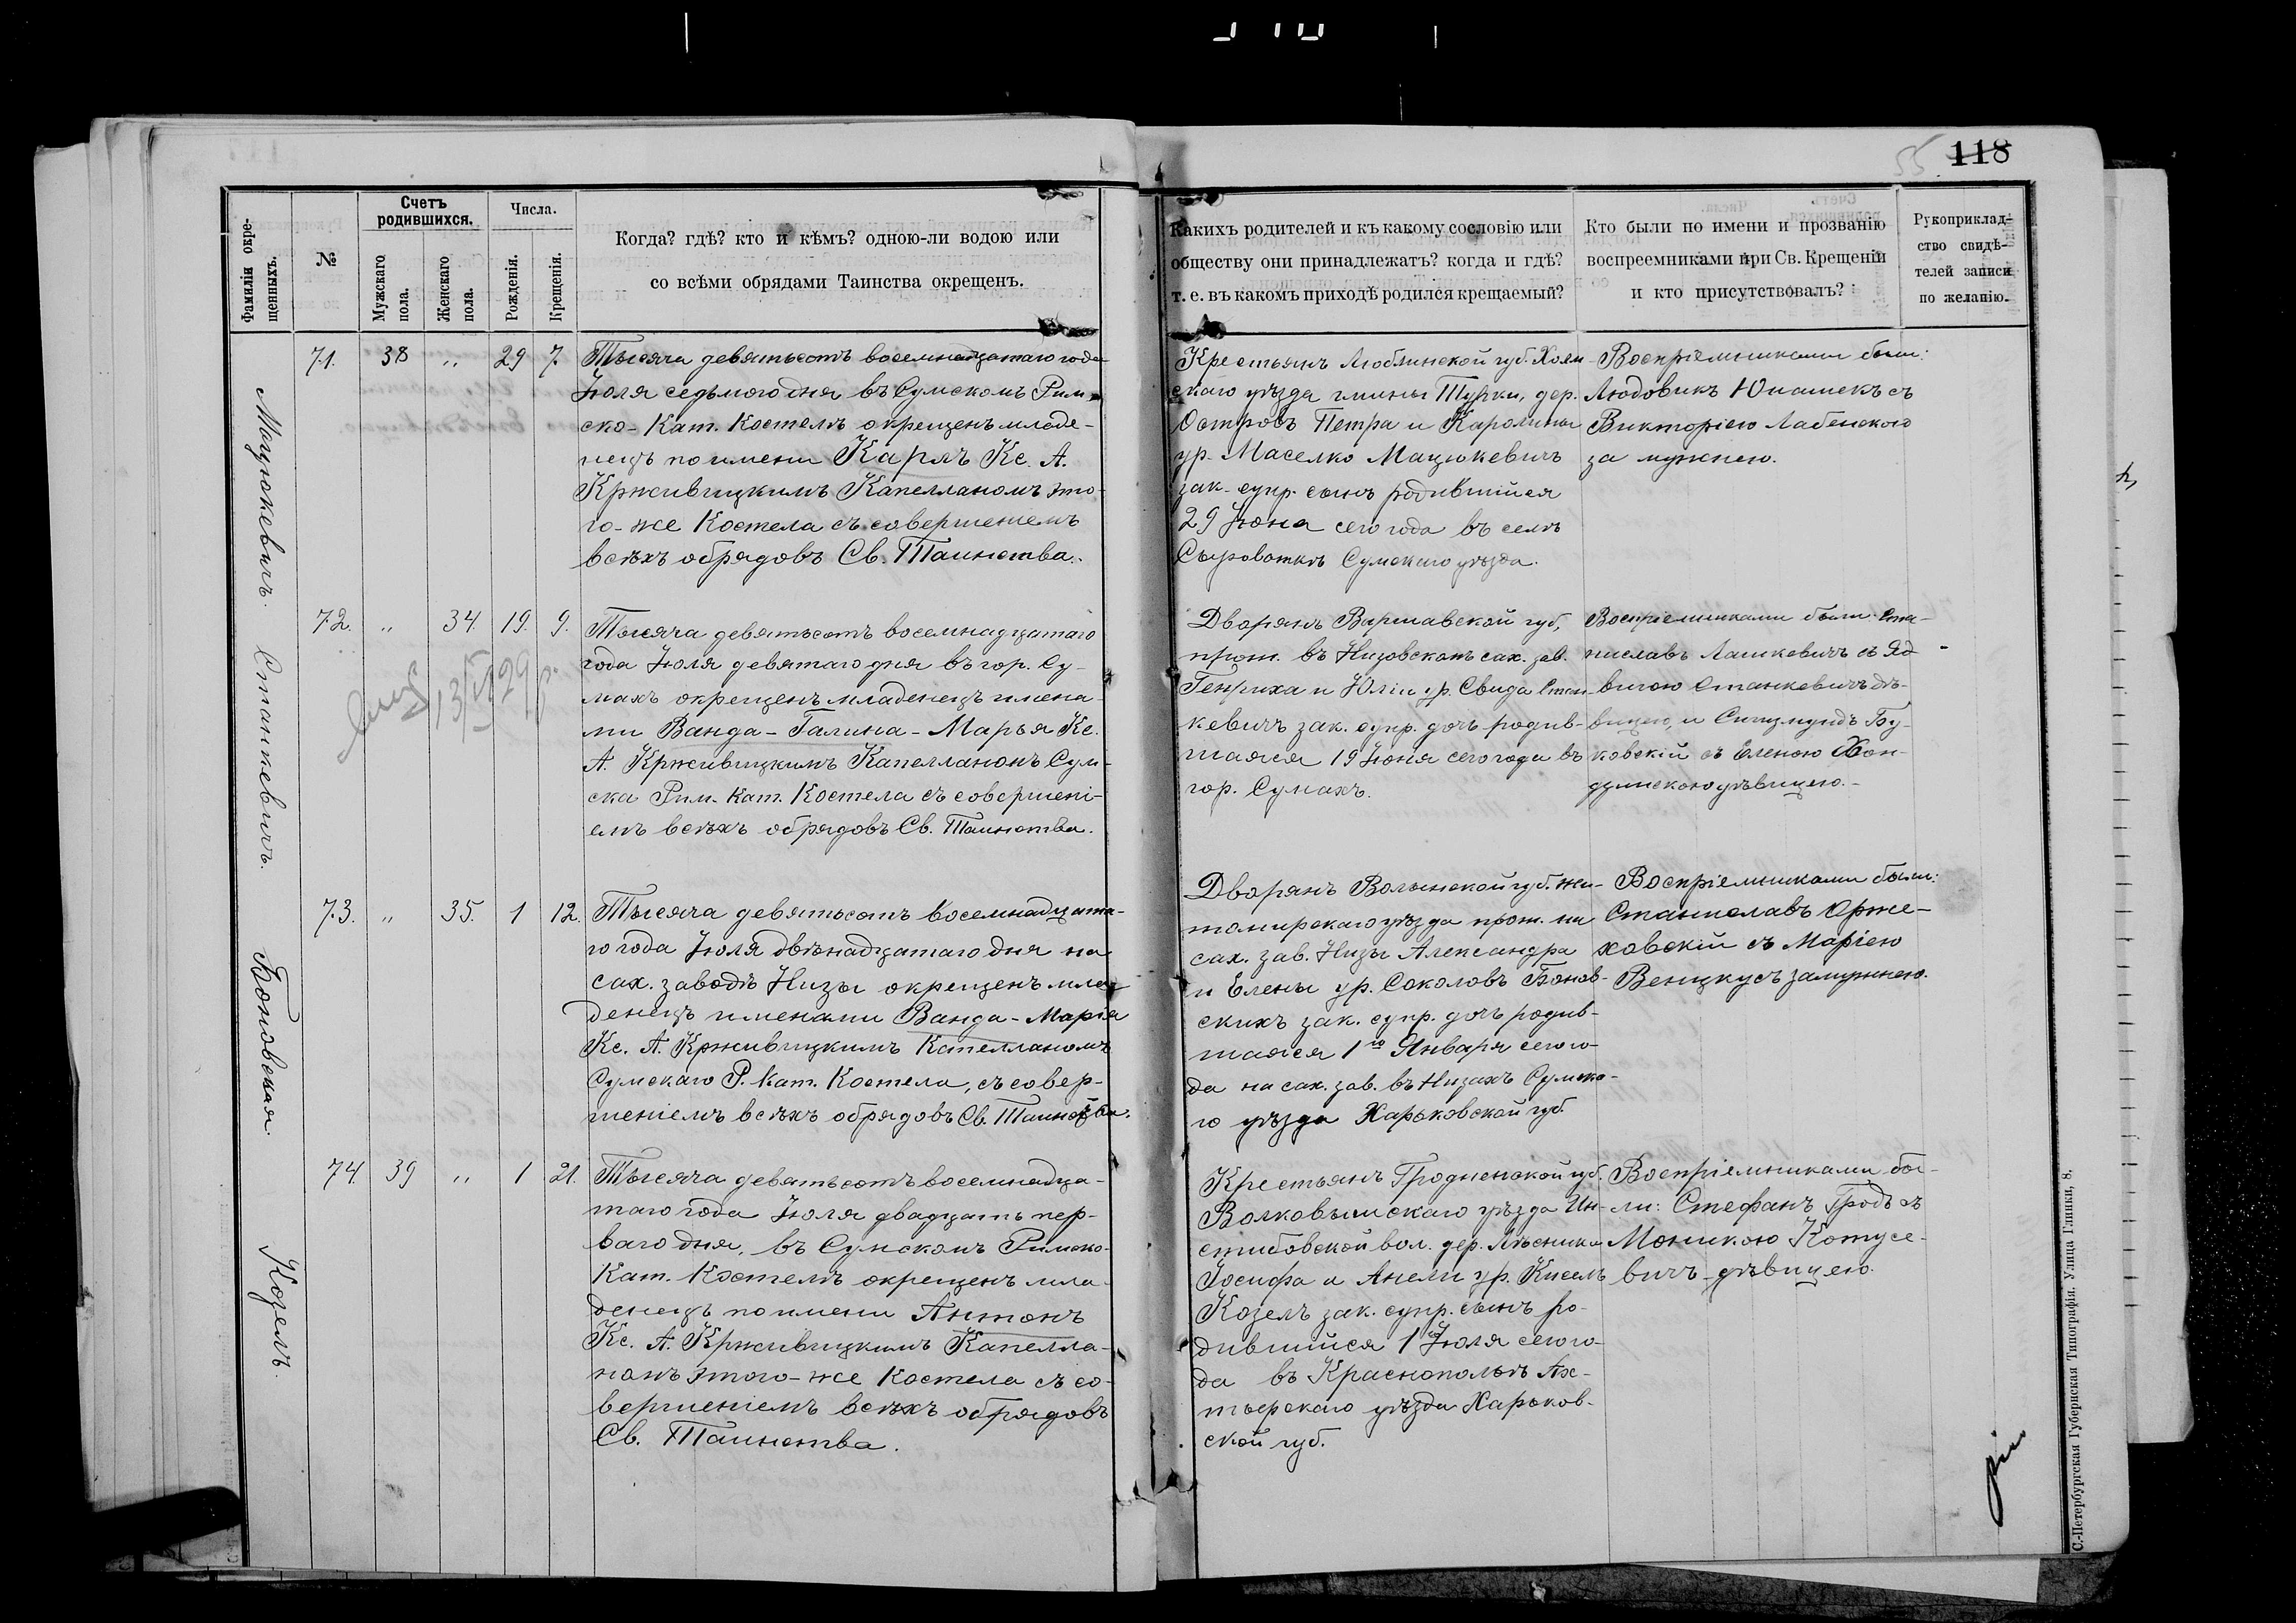 55 118
Фамиліи окре-
щенныхъ.
№
Счетъ
родившихся.
Мужскаго
пола.
Женскаго
пола.
Числа.
Рожденія.
Крещенія.
Когда? гдѣ? кто и кѣмъ? одною-ли водою или
со всѣми обрядами Таинства окрещенъ.
Какихъ родителей и къ какому сословію или
обществу они принадлежатъ? когда и гдѣ?
т. е. въ какомъ приходѣ родился крещаемый?
Кто были по имени и прозванію
воспреемниками при Св. Крещеніи
и кто присутствовалъ?
Рукоприклад-
ство свидѣ-
телей записи
по желанію.
Мацюкевичъ.
71. 38 „ 29 7.
Тысяча девятьсотъ восемнадцатаго года
Іюля седьмого дня въ Сумскомъ Рим-
ско-Кат. Костелѣ окрещенъ младе-
нецъ по имени Карлъ Кс. А.
Крживицкимъ Капелланомъ это-
го-же Костела съ совершеніемъ
всѣхъ обрядовъ Св. Таинства.
Крестьянъ Люблинской губ. Холм-
скаго уѣзда гмины Турки, дер.
Островъ Петра и Каролины
ур. Маселко Мацюкевичъ
зак. супр. сынъ родившійся
29 Іюна сего года въ селѣ
Сыроваткѣ Сумскаго уѣзда.
Воспріемниками были:
Людовикъ Юнашекъ съ
Викторіею Лабенскою
за мужнею.
Станкевичъ.
72. „ 34. 19. 9.
13/VI 1929 р.
Тысяча девятьсотъ восемнадцатаго
года Іюля девятаго дня въ гор. Су-
махъ окрещенъ младенецъ имена-
ми Ванда-Галина-Марья Кс.
А. Крживицкимъ Капелланомъ Сум-
ска Рим. Кат. Костела съ совершені-
емъ всѣхъ обрядовъ Св. Таинства.
Дворянъ Варшавской губ,
прож. въ Низовскомъ сах. зав.
Генриха и Юліи ур. Свида Стан-
кевичъ зак. супр. дочь родив-
шаяся 19 Іюня сего года въ
гор. Сумахъ.
Воспріемниками были: Ста-
ниславъ Лашкевичъ съ Яд-
вигою Станкевичъ дѣ-
вицею, и Сигизмундъ Бу-
ковскій съ Еленою Хон-
дзинскою дѣвицею.-
Боновская.
73. „ 35. 1 12.
Тысяча девятьсотъ восемнадцата-
го года Іюля двѣнадцатаго дня на
сах. заводѣ Низы окрещенъ мла-
денецъ именами Ванда-Марія
Кс. А. Крживицкимъ Капелланомъ
Сумскаго Р. Кат. Костела, съ совер-
шеніемъ всѣхъ обрядовъ Св. Таинства.
Дворянъ Волынской губ. Жи-
томирскаго уѣзда прож. на
сах. зав. Низы Александра
и Елены ур. Соколовъ Бонов-
скихъ зак. супр. дочь родив-
шаяся 1го Января сего го-
да на сах. зав. въ Низахъ Сумска-
го уѣзда Харьковской губ.
Воспріемниками были:
Станиславъ Орже-
ховскій съ Маріею
Венцкусъ замужнею.
Козелъ.
74. 39 „ 1 21.
Тысяча девятьсотъ восемнадца-
таго года Іюля двадцать пер-
ваго дня, въ Сумскомъ Римско-
Кат. Костелѣ окрещенъ мла-
денецъ по имени Антонъ
Кс. А. Крживицкимъ Капелла-
номъ этого-же Костела съ со-
вершеніемъ всѣхъ обрядовъ
Св. Таинства.
Крестьянъ Гродненской губ.
Волковыскаго уѣзда Ин-
стибовской вол. дер. Лѣсники
Іосифа и Анели ур. Кисель
Козелъ зак. супр. сынъ ро-
дившійся 1го Іюля сего го-
да въ Краснопольѣ Ах-
тырскаго уѣзда Харьков-
ской губ.
Воспріемниками бы-
ли: Стефанъ Гродъ съ
Моникою Котусе-
вичъ дѣвицею.
С.-Петербургская Губернская Типографія. Улица Глинки, 8.